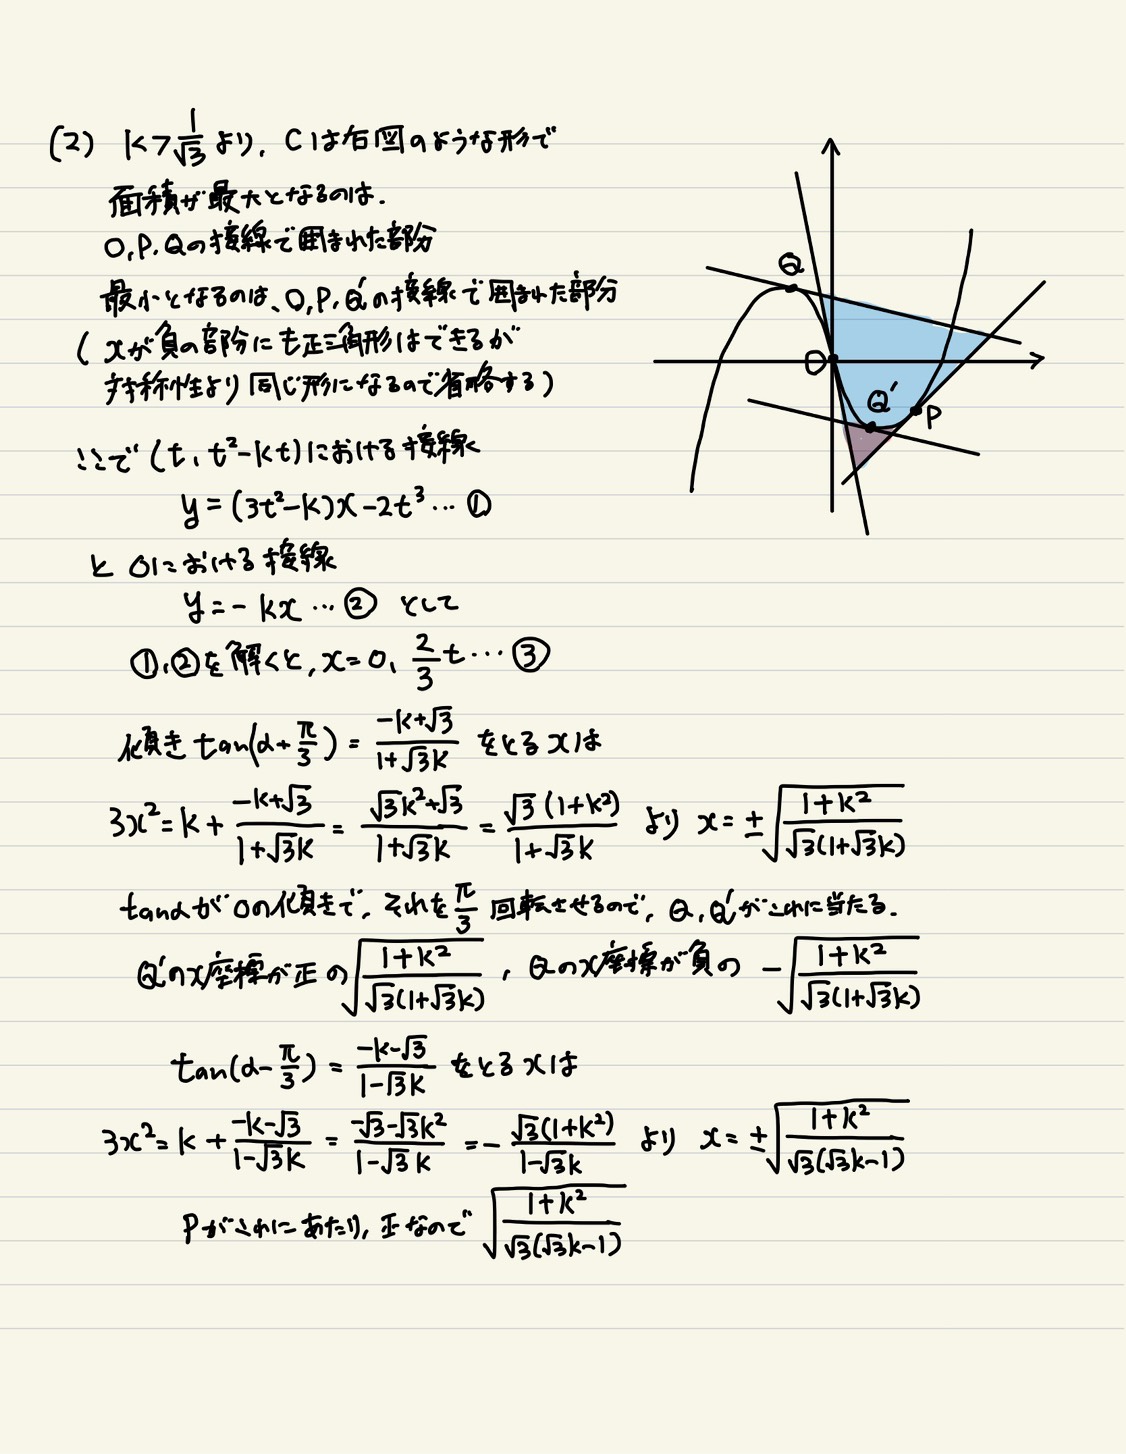 (2) k>1/√3 より、Cは右図のような形で
面積が最大となるのは.
O,P,Qの接線で囲まれた部分
最小となるのは、O,P,Q'の接線で囲まれた部分
( xが負の部分にも正三角形はできるが
対称性より同じ形になるので省略する)
ここで (t, t²-kt)における接線
y=(3t²-k)x-2t³…①
と Oにおける接線
y=-kx…② として
①,②を解くと, x=0, 2/3 t…③
傾き tan(α+π/3) = (-k+√3)/(1+√3k) をとるxは
3x²=k+(-k+√3)/(1+√3k) = (√3k²+√3)/(1+√3k) = √3(1+k²)/(1+√3k) より x=±√((1+k²)/(√3(1+√3k)))
tanαがOの傾きで、それをπ/3回転させるので、Q,Q'がこれに当たる.
Q'のx座標が正の√((1+k²)/(√3(1+√3k))), Qのx座標が負の -√((1+k²)/(√3(1+√3k)))
tan(α-π/3) = (-k-√3)/(1-√3k) をとるxは
3x²=k+(-k-√3)/(1-√3k) = (-√3-√3k²)/(1-√3k) =-√3(1+k²)/(1-√3k) より x=±√((1+k²)/(√3(√3k-1)))
Pがこれにあたり, 正なので √((1+k²)/(√3(√3k-1)))
Q
O
Q'
P